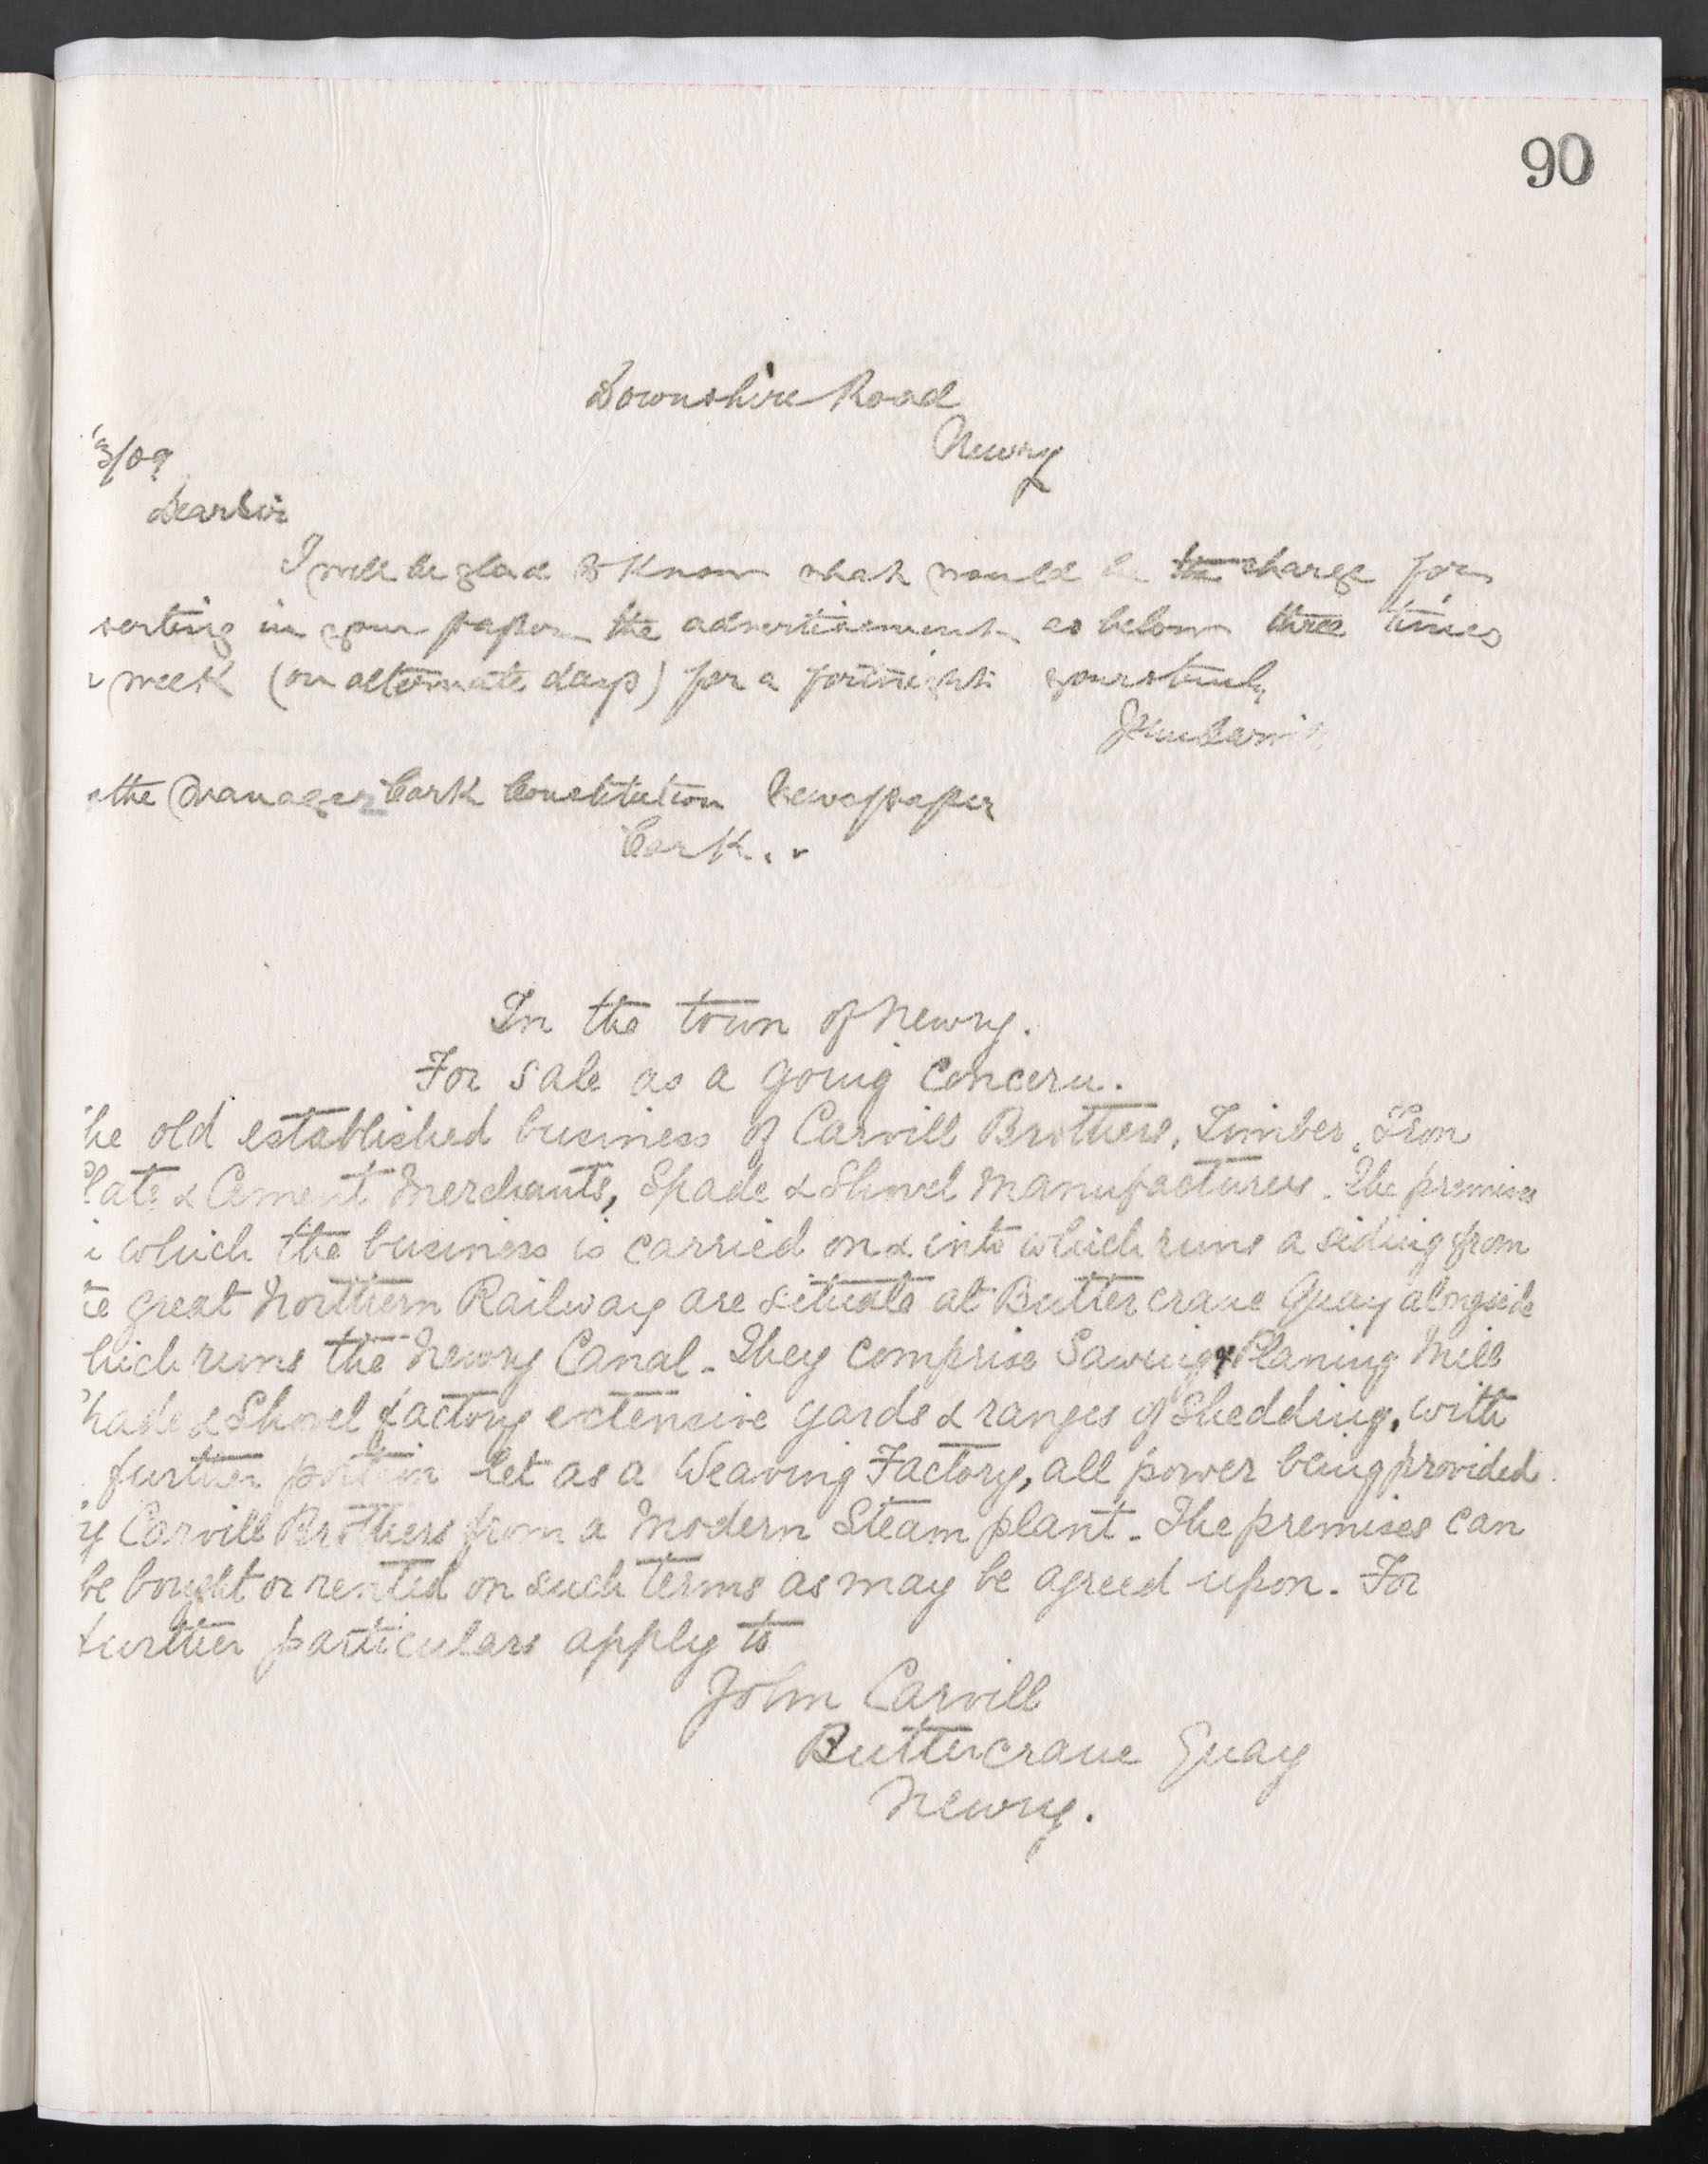 90
Downshire Road
Newry
3/09
Dear Sir
I will be glad to know what would be the charge for
serting in your paper the advertisement as below three times
week (on alternate days) for a fortnight yours truly
John Carvill
the Manager Cork Constitution Newspaper
Cork..
In the town of Newry.
For sale as a going concern.
he old established business of Carvill Brothers, Timber, Iron
late & Cement Merchants, Spade & Shovel Manufacturers. The premises
which the business is carried on & into which runs a siding from
e great Northern Railway are situate at Buttercrane Quay alongside
hich runs the Newry Canal - They comprise Sawing & Planing Mill
hade & Shovel factory extensive yards & ranges of Shedding, with
further portion let as a Weaving Factory, all power being provided
y Carvill Brothers from a Modern Steam plant - The premises can
be bought or rented on such terms as may be agreed upon. For
further particulars apply to
John Carvill
Buttercrane Quay
Newry.